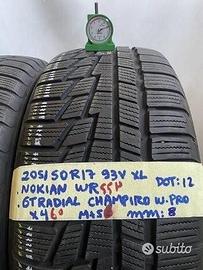 205/50R17 93V XL
.NOKIAN WR DOT:12
.GTRADIAL CHAMPIRO W.PRO
X4 60 M+S mm: 8